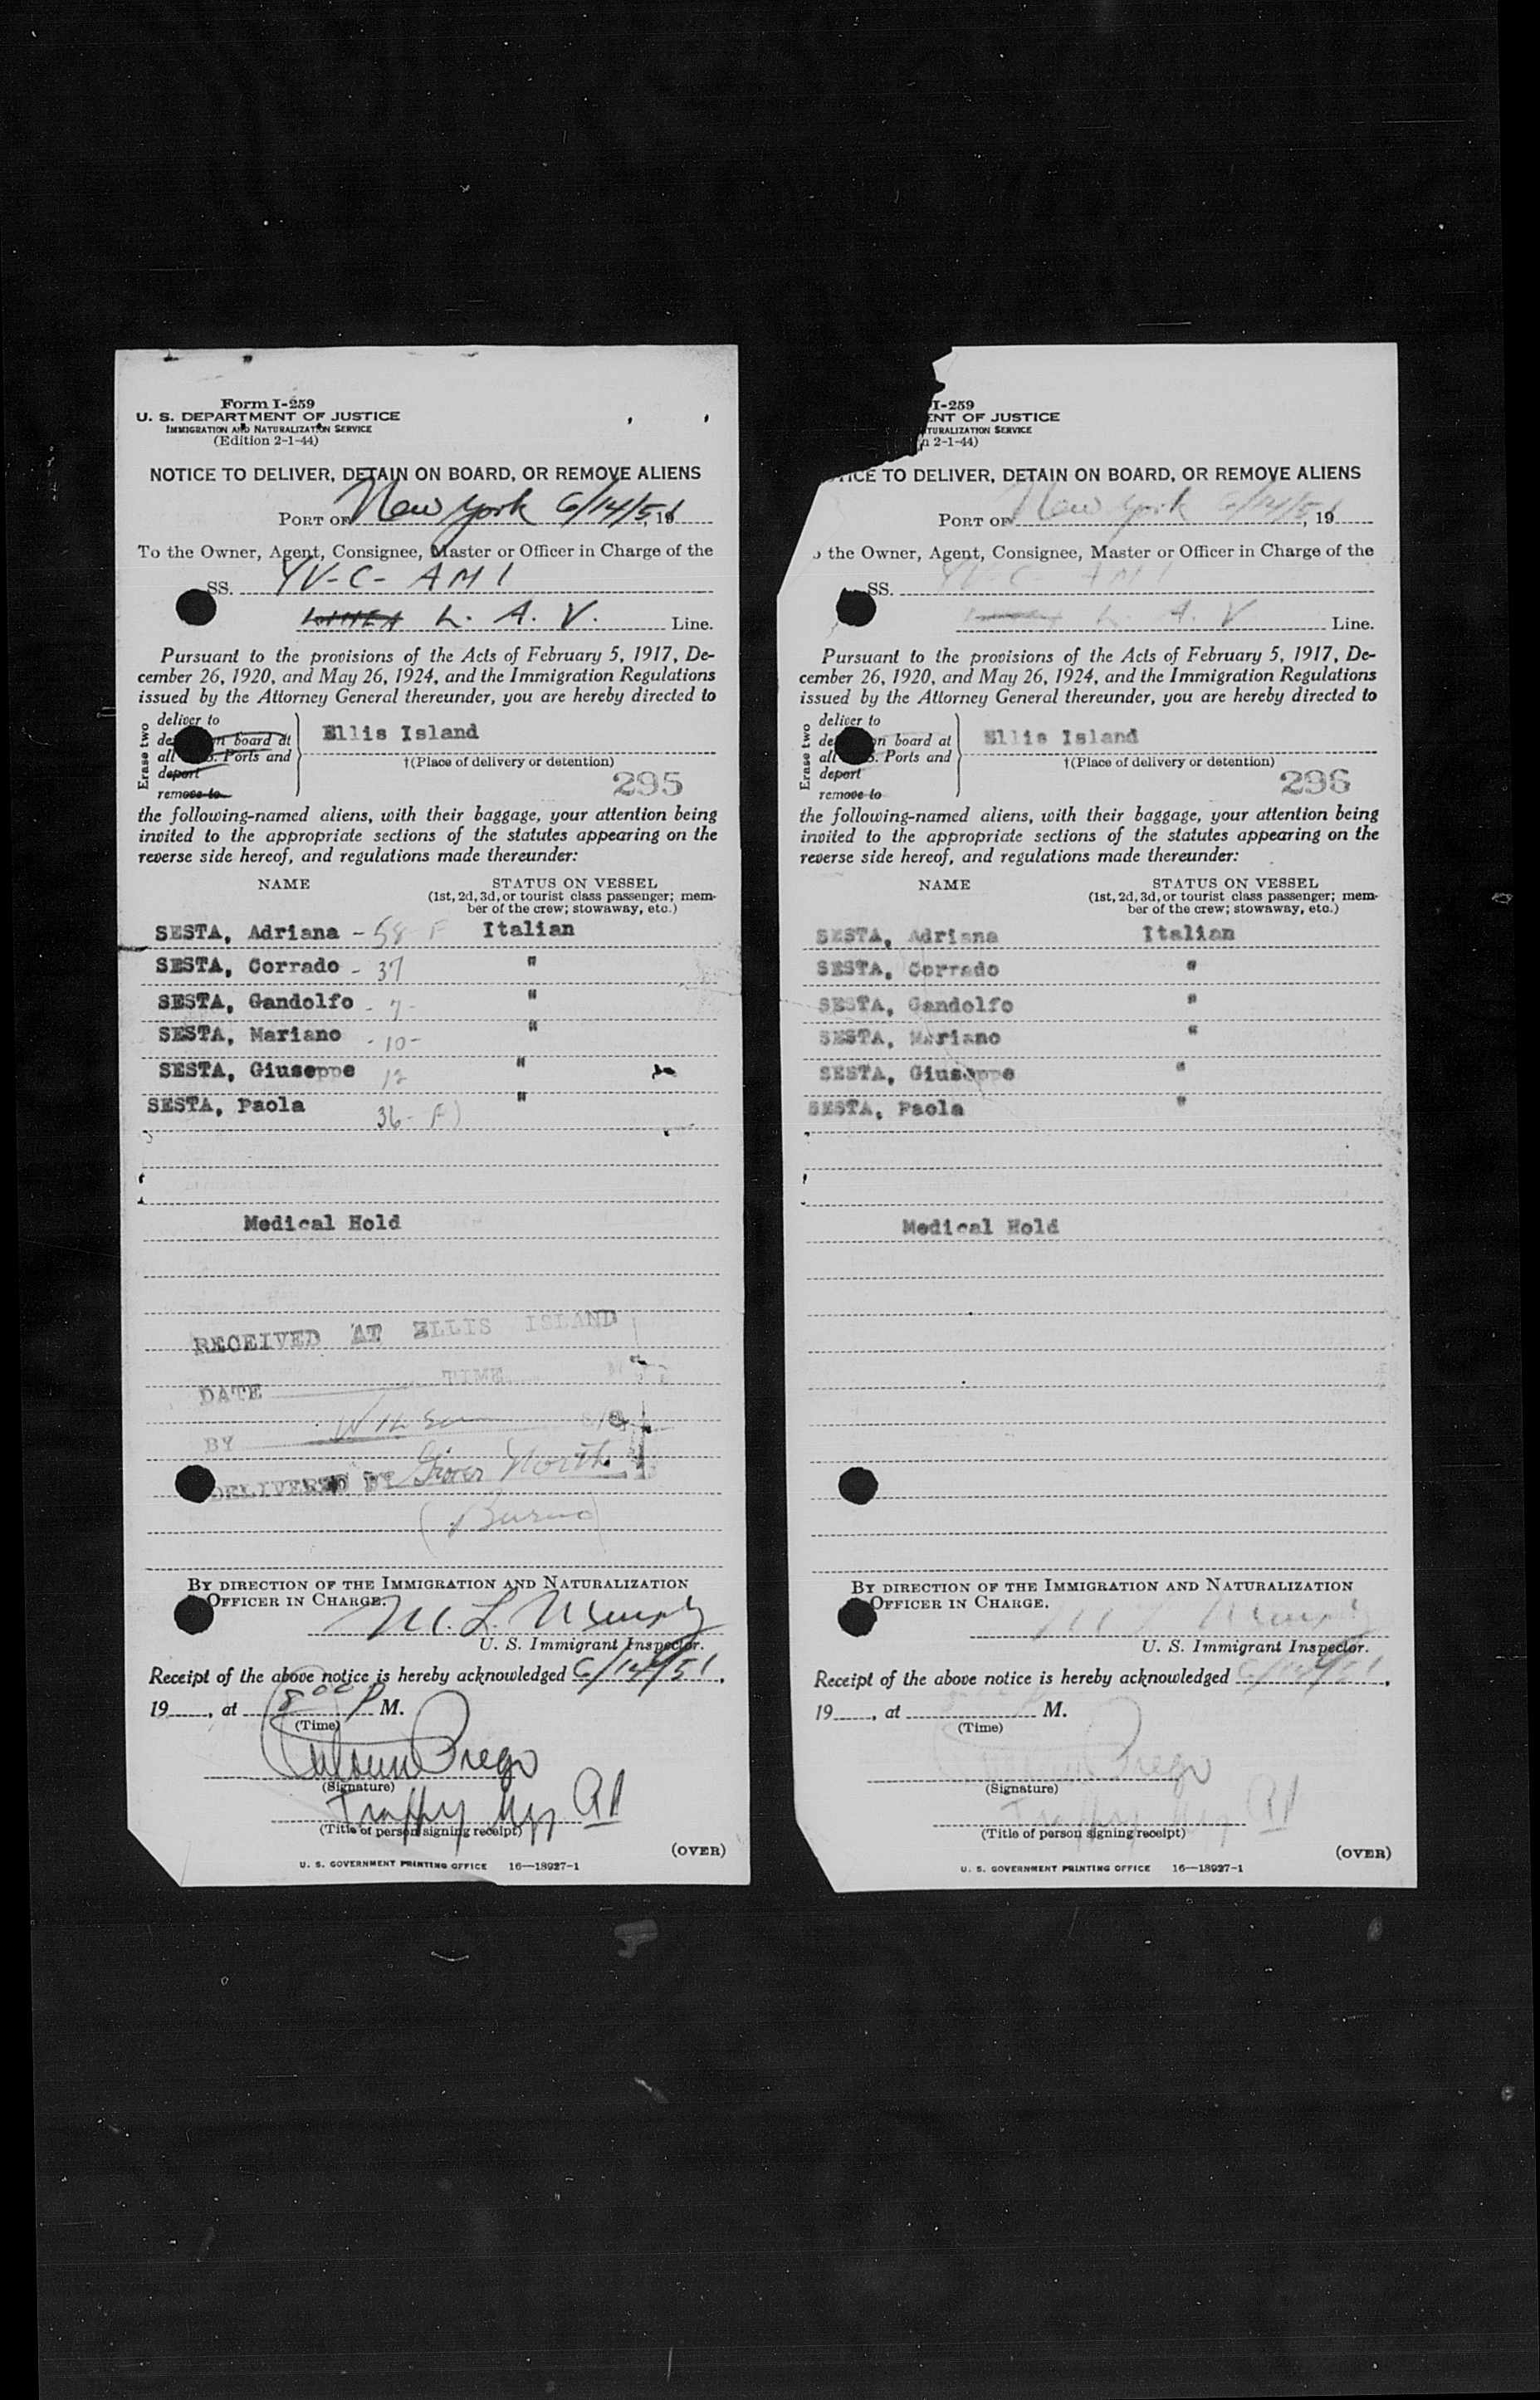 Form I-259
U. S. DEPARTMENT OF JUSTICE
IMMIGRATION AND NATURALIZATION SERVICE
(Edition 2-1-44)
NOTICE TO DELIVER, DETAIN ON BOARD, OR REMOVE ALIENS
PORT OF New York 6/14/51, 19
To the Owner, Agent, Consignee, Master or Officer in Charge of the
SS. YV-C-AMI
L. A. V. Line.
Pursuant to the provisions of the Acts of February 5, 1917, De-
cember 26, 1920, and May 26, 1924, and the Immigration Regulations
issued by the Attorney General thereunder, you are hereby directed to
Erase two
deliver to
de n board at
all S. Ports and
deport
remove to
Ellis Island
†(Place of delivery or detention)
295
the following-named aliens, with their baggage, your attention being
invited to the appropriate sections of the statutes appearing on the
reverse side hereof, and regulations made thereunder:
NAME STATUS ON VESSEL
(1st, 2d, 3d, or tourist class passenger; mem-
ber of the crew; stowaway, etc.)
SESTA, Adriana - 58 F Italian
SESTA, Corrado - 37 "
SESTA, Gandolfo - 7 - "
SESTA, Mariano - 10 - "
SESTA, Giuseppe 12 "
SESTA, Paola 36 - F) "
Medical Hold
RECEIVED AT ELLIS ISLAND
DATE TIME M
BY
DELIVERED BY North
BY DIRECTION OF THE IMMIGRATION AND NATURALIZATION
OFFICER IN CHARGE.
M. L. Murphy
U. S. Immigrant Inspector.
Receipt of the above notice is hereby acknowledged 6/14/51,
19, at 8 00 P M.
(Time)
Prego
(Signature)
(Title of person signing receipt)
(OVER)
U. S. GOVERNMENT PRINTING OFFICE 16—18927-1
I-259
ENT OF JUSTICE
TURALIZATION SERVICE
n 2-1-44)
TICE TO DELIVER, DETAIN ON BOARD, OR REMOVE ALIENS
PORT OF New York 6/14/51, 19
o the Owner, Agent, Consignee, Master or Officer in Charge of the
SS. YV-C-AMI
L. A. V Line.
Pursuant to the provisions of the Acts of February 5, 1917, De-
cember 26, 1920, and May 26, 1924, and the Immigration Regulations
issued by the Attorney General thereunder, you are hereby directed to
Erase two
deliver to
de n board at
all S. Ports and
deport
remove to
Ellis Island
†(Place of delivery or detention)
296
the following-named aliens, with their baggage, your attention being
invited to the appropriate sections of the statutes appearing on the
reverse side hereof, and regulations made thereunder:
NAME STATUS ON VESSEL
(1st, 2d, 3d, or tourist class passenger; mem-
ber of the crew; stowaway, etc.)
SESTA, Adriana Italian
SESTA, Corrado "
SESTA, Gandolfo "
SESTA, Mariano "
SESTA, Giuseppe "
SESTA, Paola "
Medical Hold
BY DIRECTION OF THE IMMIGRATION AND NATURALIZATION
OFFICER IN CHARGE.
Murphy
U. S. Immigrant Inspector.
Receipt of the above notice is hereby acknowledged 6/14/51,
19, at M.
(Time)
Prego
(Signature)
(Title of person signing receipt)
(OVER)
U. S. GOVERNMENT PRINTING OFFICE 16—18927-1